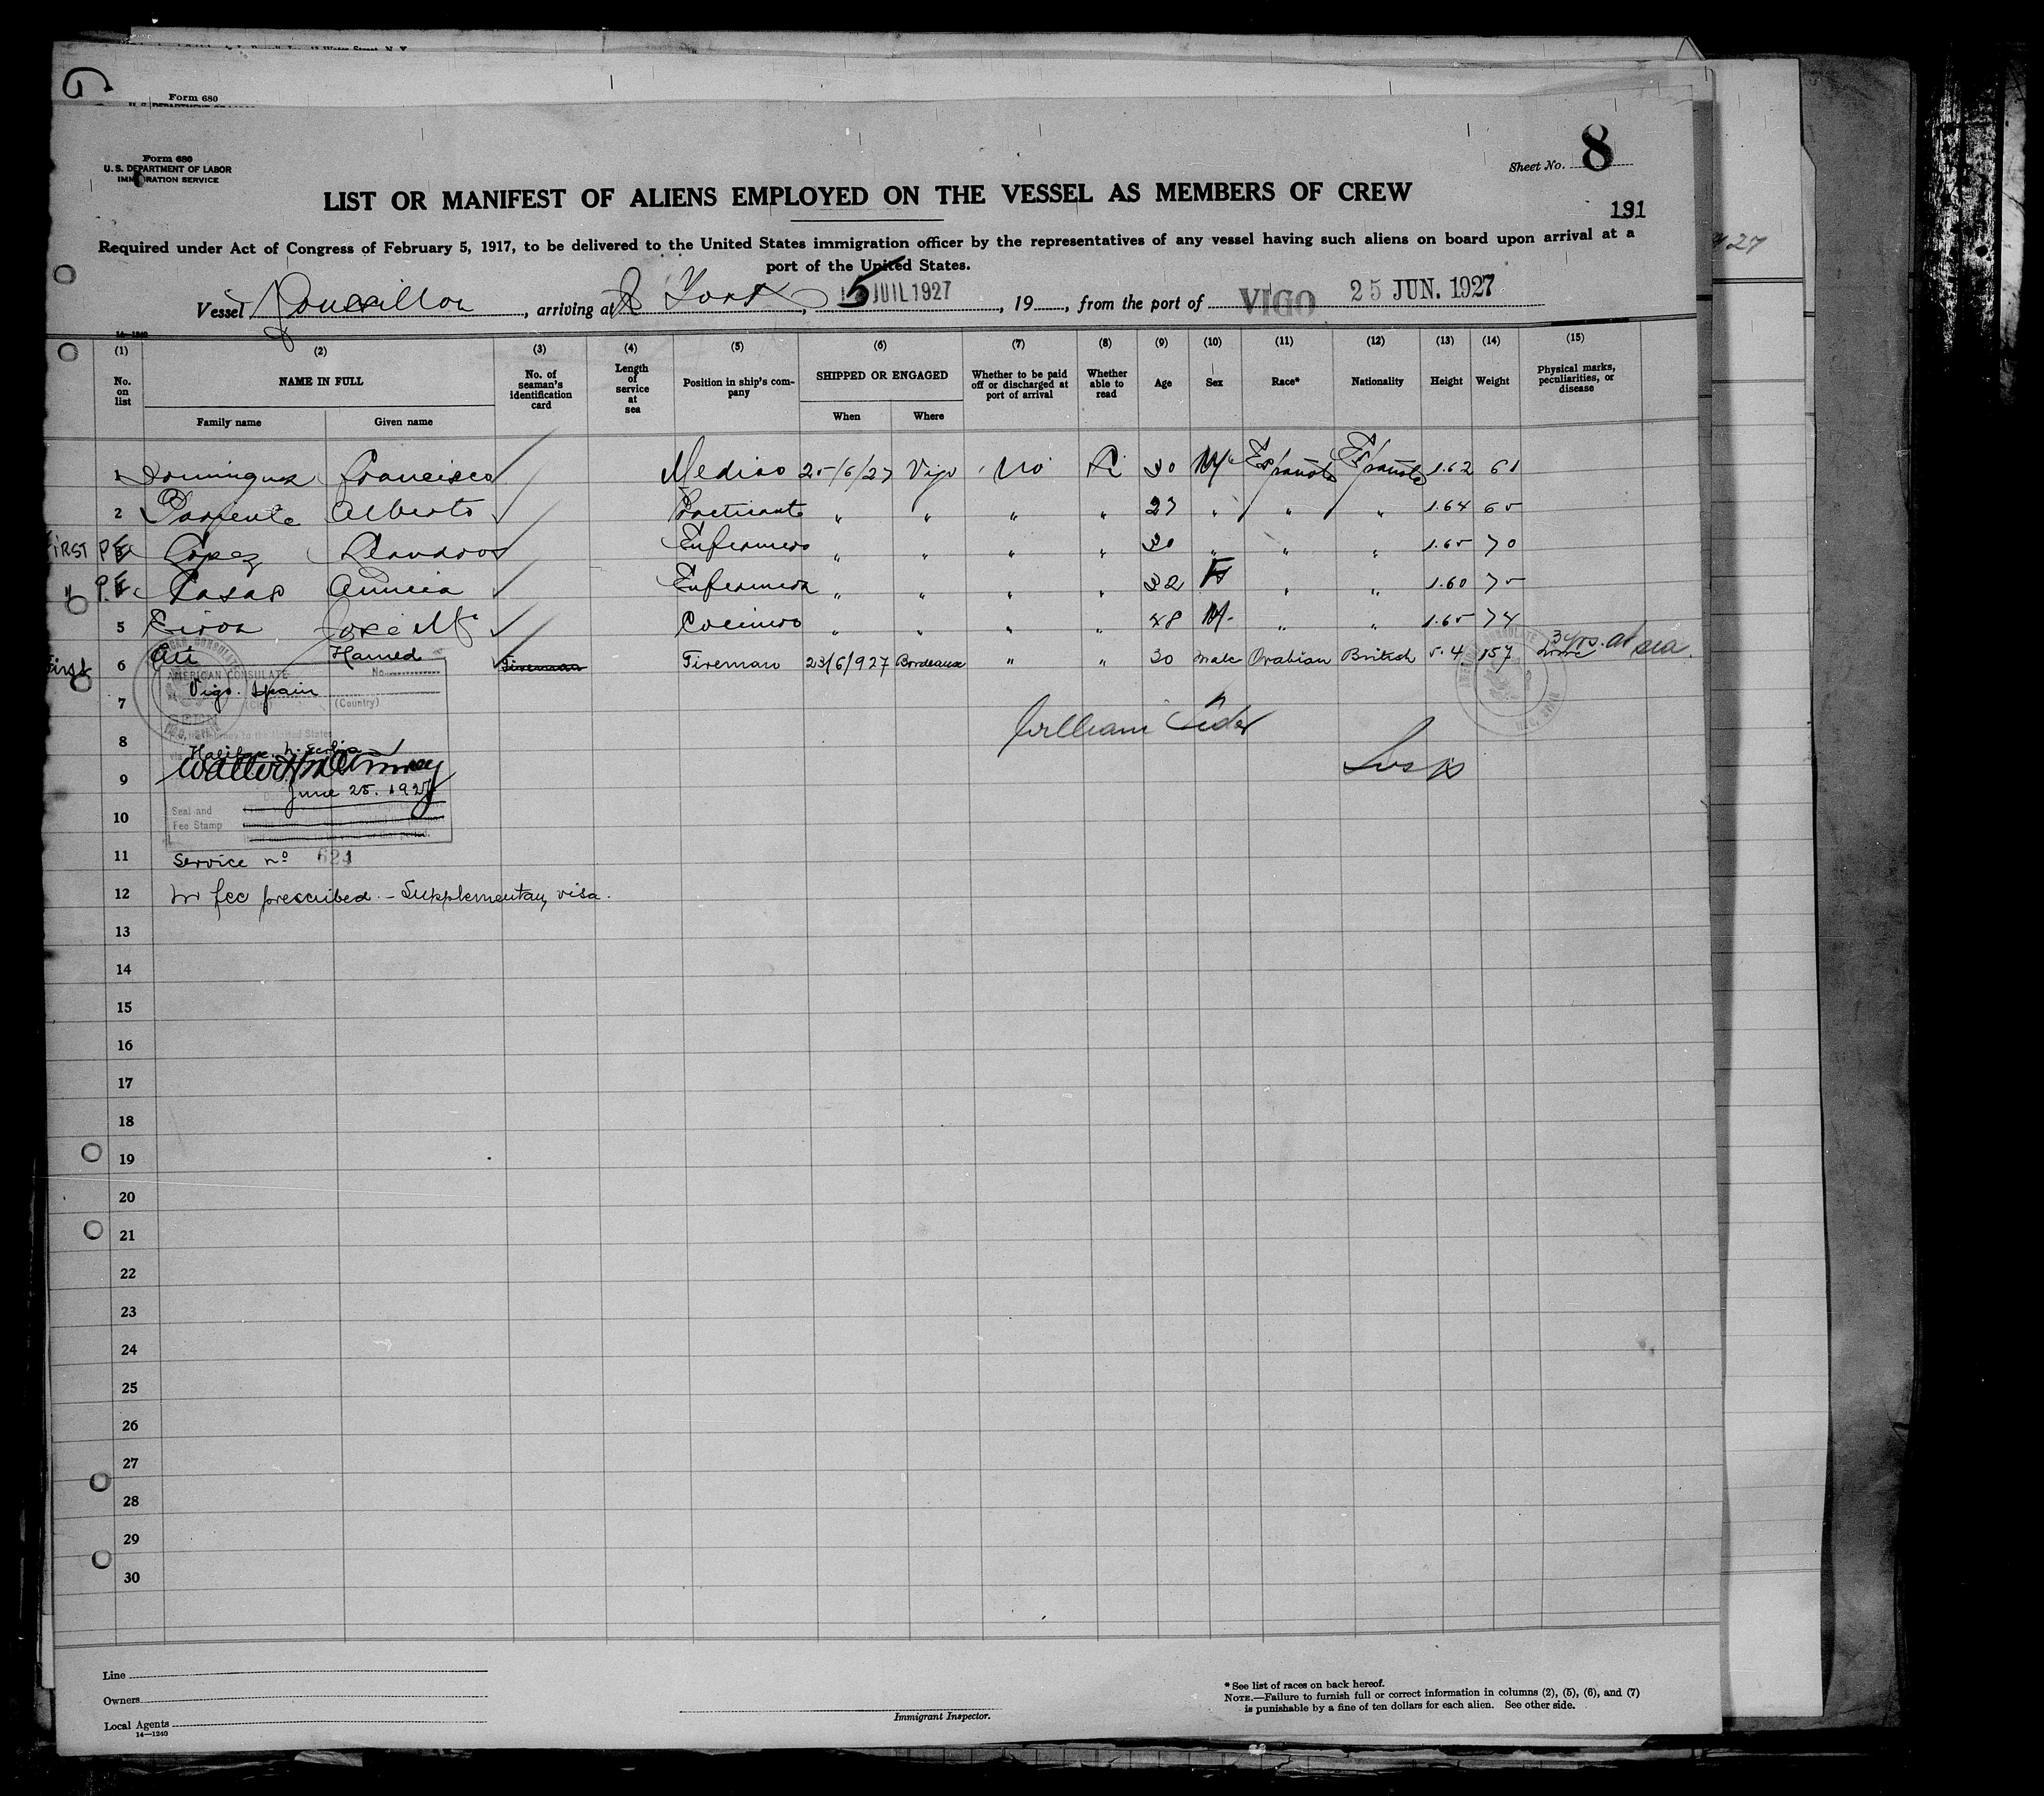 Form 680
Form 680
U. S. DEPARTMENT OF LABOR
IMMIGRATION SERVICE
Sheet No. 8
LIST OR MANIFEST OF ALIENS EMPLOYED ON THE VESSEL AS MEMBERS OF CREW
191
Required under Act of Congress of February 5, 1917, to be delivered to the United States immigration officer by the representatives of any vessel having such aliens on board upon arrival at a
port of the United States.
Vessel Roussillon, arriving at N York, 5 JUIL 1927, 19, from the port of VIGO 25 JUN. 1927
14—1240
(1) (2) (3) (4) (5) (6) (7) (8) (9) (10) (11) (12) (13) (14) (15)
No. on list NAME IN FULL Family name Given name No. of seaman's identification card Length of service at sea Position in ship's company SHIPPED OR ENGAGED When Where Whether to be paid off or discharged at port of arrival Whether able to read Age Sex Race* Nationality Height Weight Physical marks, peculiarities, or disease
1 Francisco Medico 25/6/27 Vigo No R 30 M Española Española 1.62 61
2 Alberto Practicante " " " " 27 " " " 1.64 65
FIRST PE Lopez Enfermero " " " " 30 " " " 1.65 70
" P.E. Casas Enfermera " " " " 32 F " " 1.60 75
5 Jose Mª Cocinero " " " " 48 M. " " 1.65 74
First 6 Ali Hamed Fireman Fireman 23/6/927 Bordeaux " " 30 Male Arabian British 5.4 157 3 yrs. at sea.
AMERICAN CONSULATE No.
7 Vigo. Spain
(City) (Country)
William
8
9
June 25. 1927
10 Seal and
Fee Stamp
11 Service nº 621
12 No fee prescribed. - Supplementary visa.
13
14
15
16
17
18
19
20
21
22
23
24
25
26
27
28
29
30
Line
Owners
Local Agents
14—1240
Immigrant Inspector.
* See list of races on back hereof.
NOTE.—Failure to furnish full or correct information in columns (2), (5), (6), and (7)
is punishable by a fine of ten dollars for each alien. See other side.